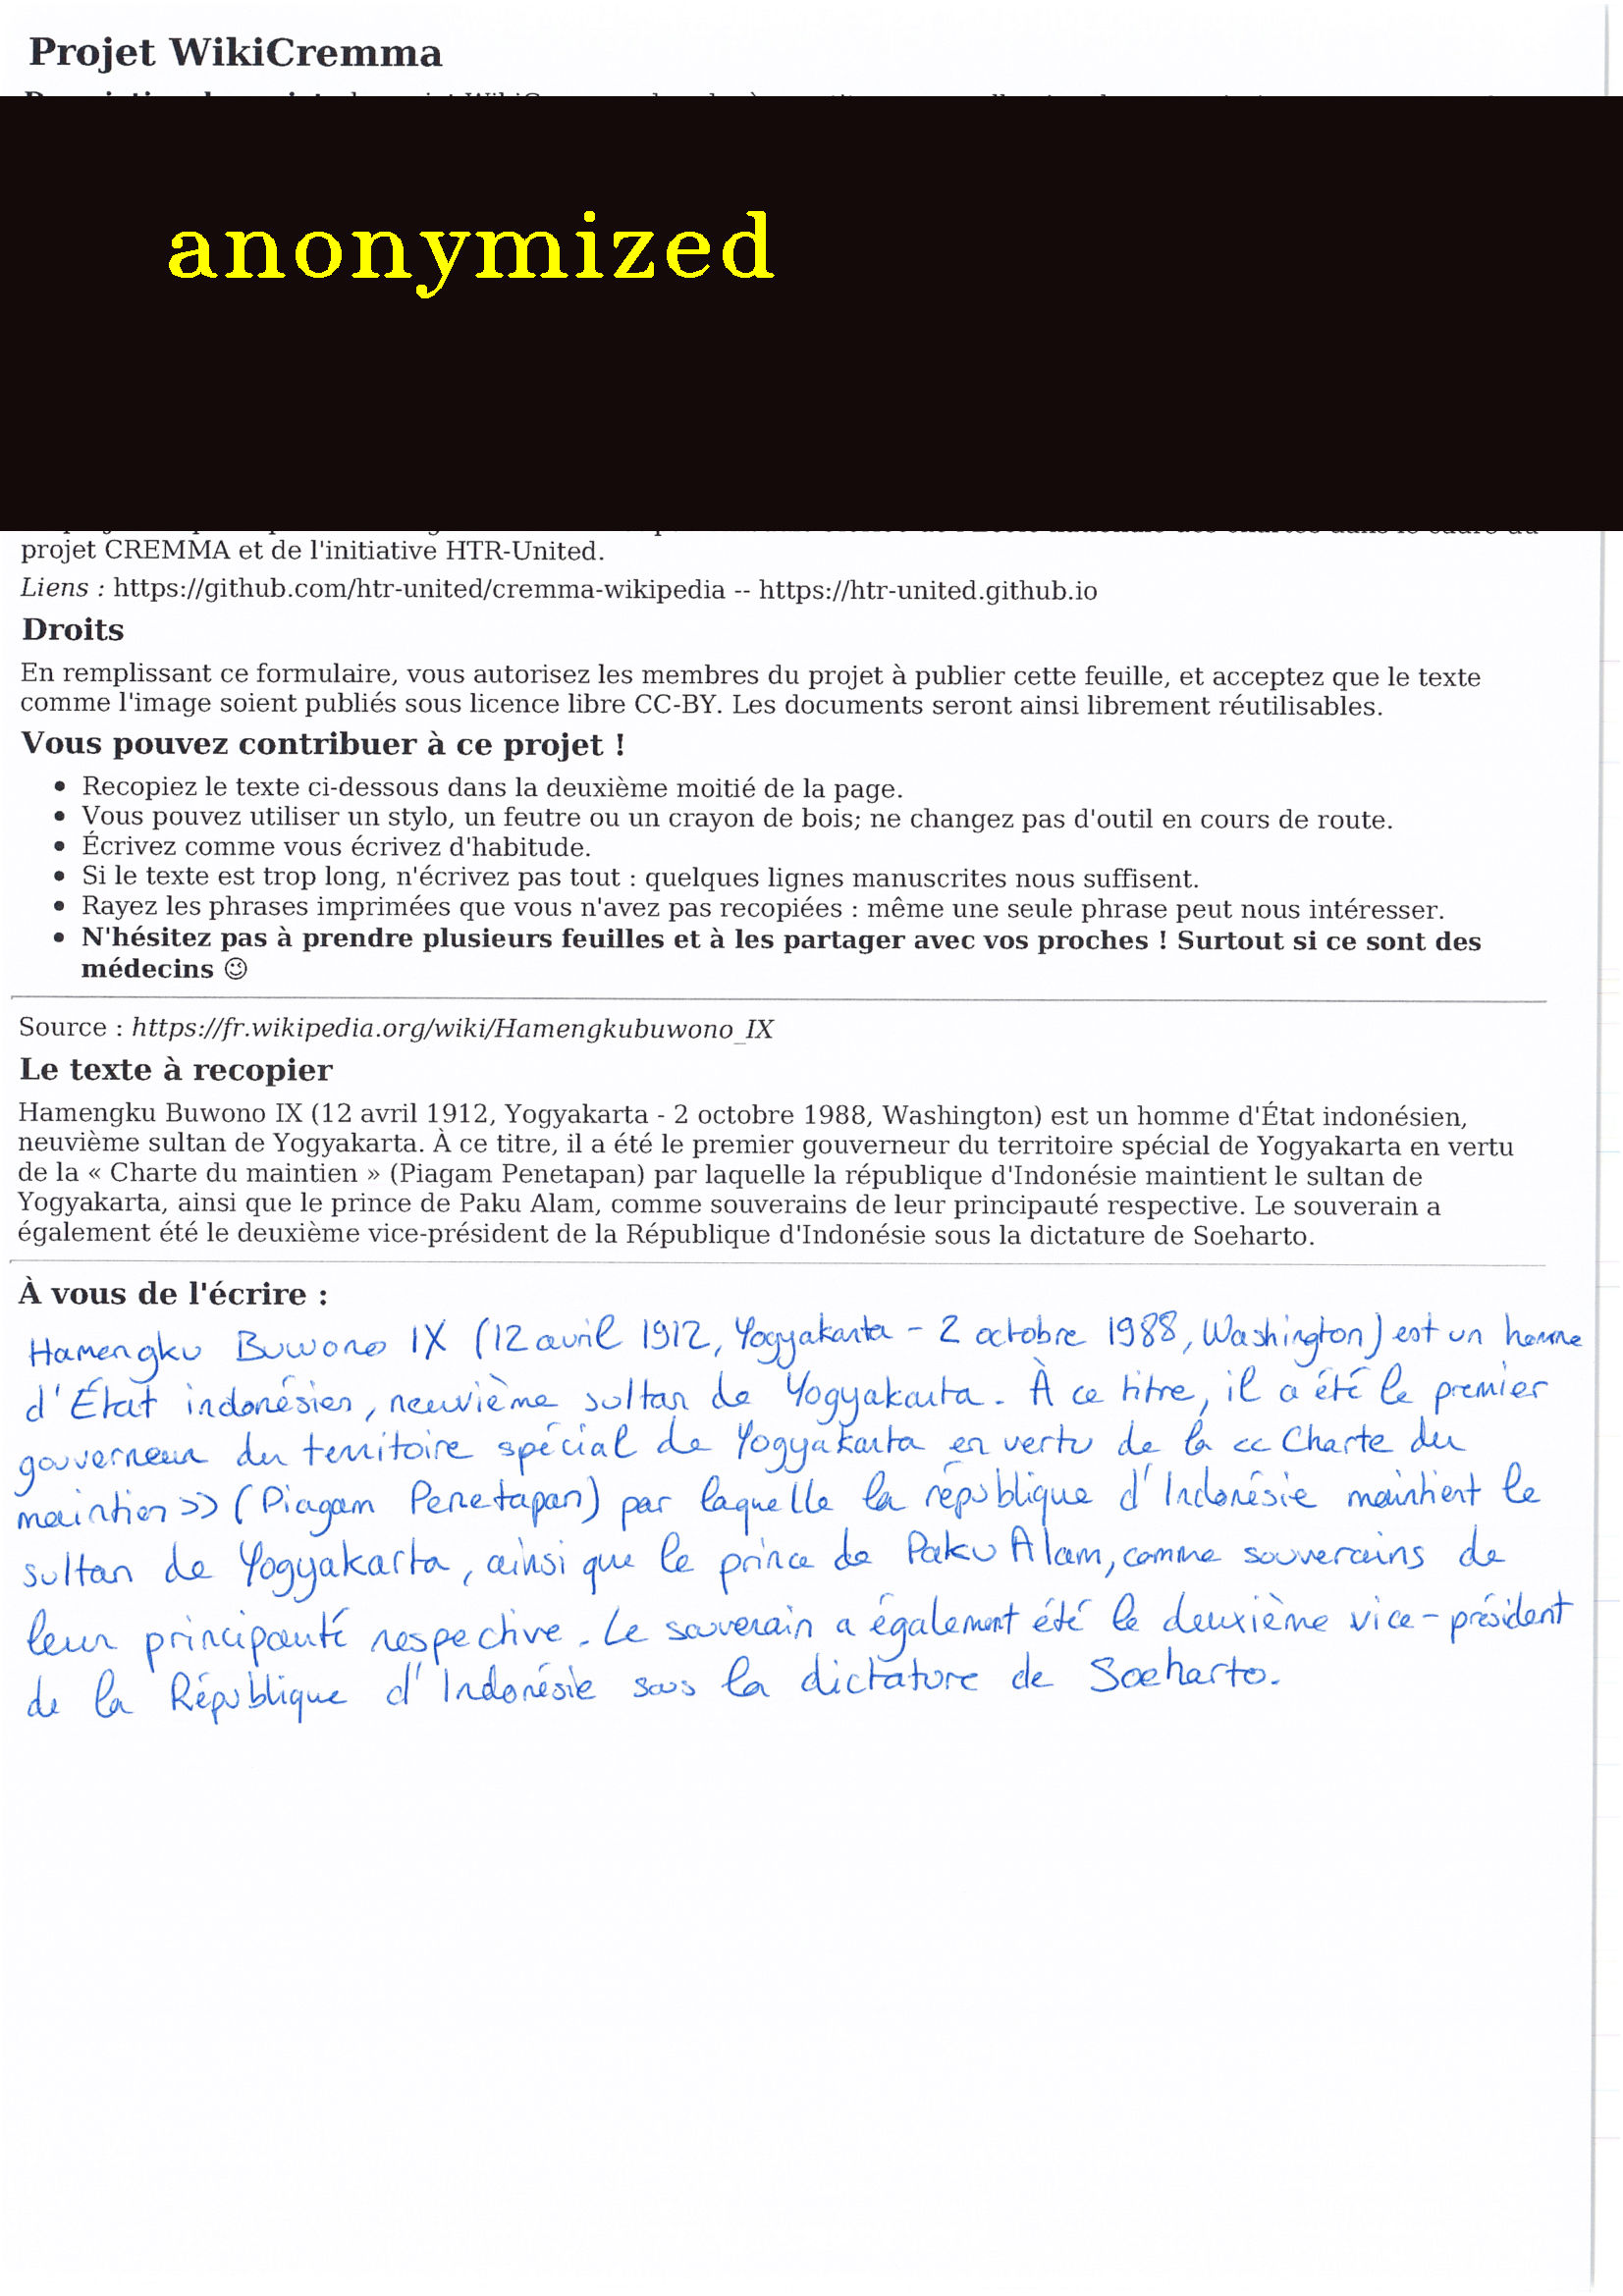 Projet WikiCremma
anonymized
projet CREMMA et de l'initiative HTR-United.
Liens : https://github.com/htr-united/cremma-wikipedia -- https://htr-united.github.io
Droits
En remplissant ce formulaire, vous autorisez les membres du projet à publier cette feuille, et acceptez que le texte
comme l'image soient publiés sous licence libre CC-BY. Les documents seront ainsi librement réutilisables.
Vous pouvez contribuer à ce projet !
• Recopiez le texte ci-dessous dans la deuxième moitié de la page.
• Vous pouvez utiliser un stylo, un feutre ou un crayon de bois; ne changez pas d'outil en cours de route.
• Écrivez comme vous écrivez d'habitude.
• Si le texte est trop long, n'écrivez pas tout : quelques lignes manuscrites nous suffisent.
• Rayez les phrases imprimées que vous n'avez pas recopiées : même une seule phrase peut nous intéresser.
• N'hésitez pas à prendre plusieurs feuilles et à les partager avec vos proches ! Surtout si ce sont des
médecins ☺
Source : https://fr.wikipedia.org/wiki/Hamengkubuwono_IX
Le texte à recopier
Hamengku Buwono IX (12 avril 1912, Yogyakarta - 2 octobre 1988, Washington) est un homme d'État indonésien,
neuvième sultan de Yogyakarta. À ce titre, il a été le premier gouverneur du territoire spécial de Yogyakarta en vertu
de la « Charte du maintien » (Piagam Penetapan) par laquelle la république d'Indonésie maintient le sultan de
Yogyakarta, ainsi que le prince de Paku Alam, comme souverains de leur principauté respective. Le souverain a
également été le deuxième vice-président de la République d'Indonésie sous la dictature de Soeharto.
À vous de l'écrire :
Hamengku Buwono IX (12 avril 1912, Yogyakarta - 2 octobre 1988, Washington) est un homme
d'État indonésien, neuvième sultan de Yogyakarta. À ce titre, il a été le premier
gouverneur du territoire spécial de Yogyakarta en vertu de la << Charte du
maintien >> (Piagam Penetapan) par laquelle la république d'Indonésie maintient le
sultan de Yogyakarta, ainsi que le prince de Paku Alam, comme souverains de
leur principauté respective. Le souverain a également été le deuxième vice-président
de la République d'Indonésie sous la dictature de Soeharto.